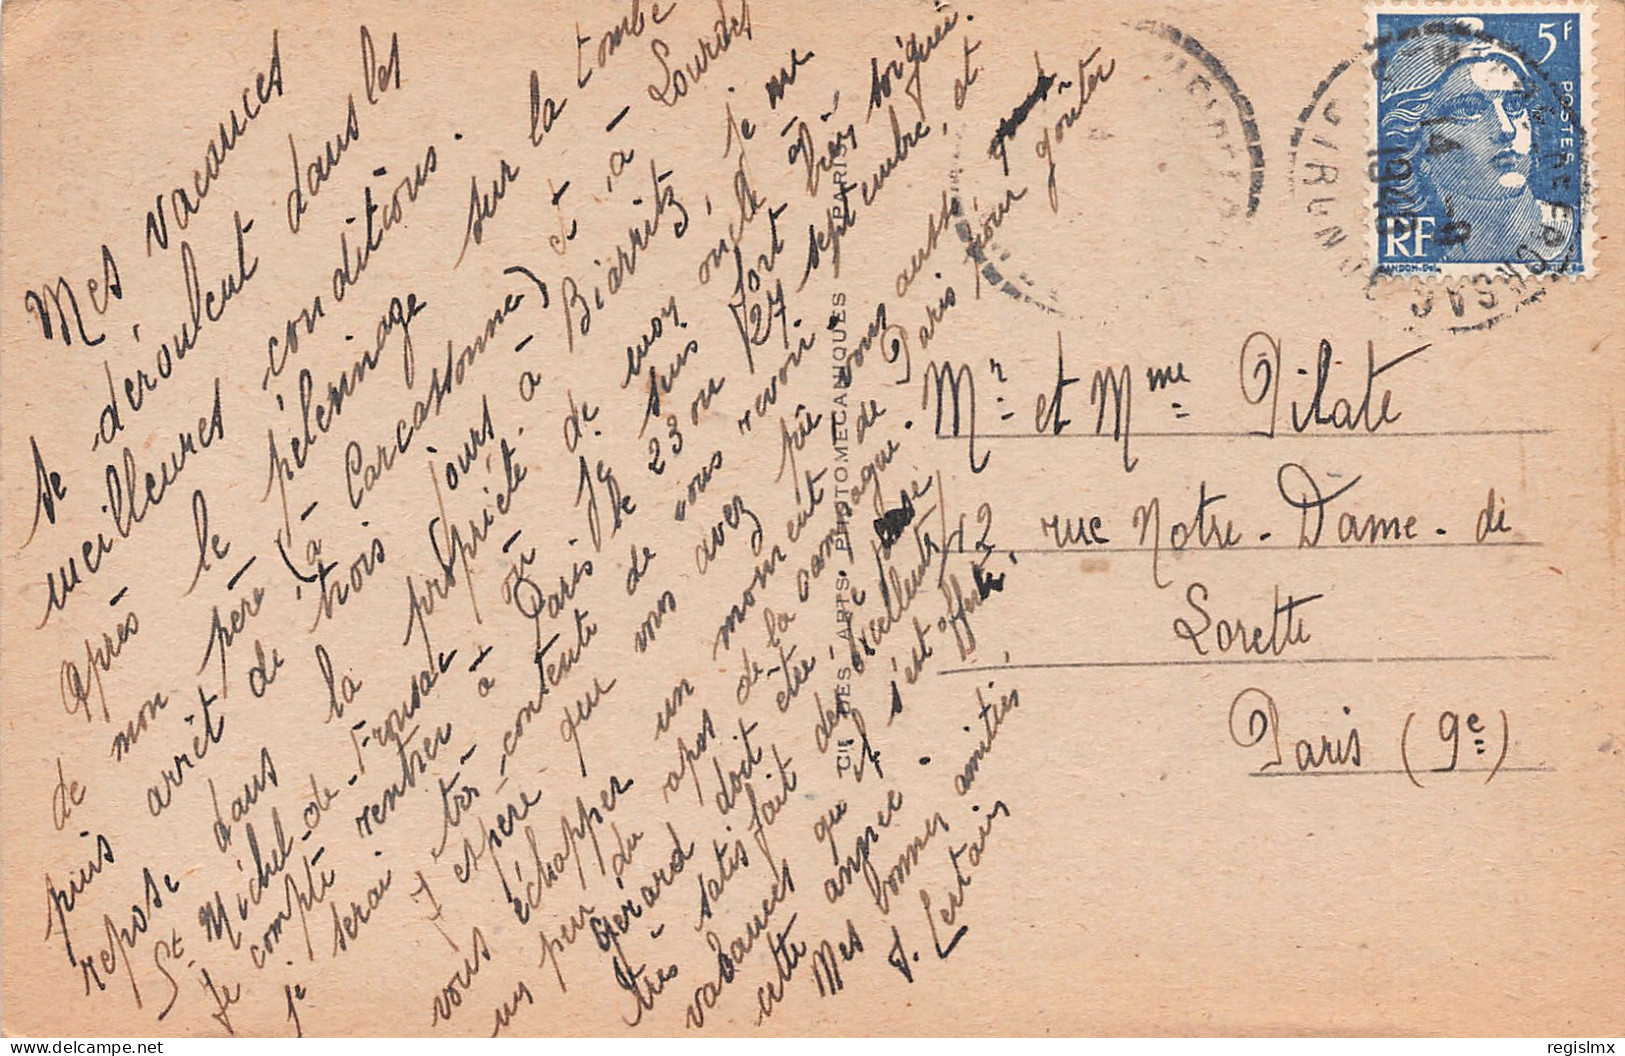 Mes vacances
se déroulent dans les
meilleures conditions.
Après le pélerinage sur la tombe
de mon père (à Carcassonne) et à Lourdes
puis arrêt de trois jours à Biarritz, je me
repose dans la propriété de mon oncle à
St Michel-de-Fronsac où je suis fort bien soignée.
Je compte rentrer à Paris le 23 ou 27 septembre, et
je serai très contente de vous revoir.
J'espère que vous avez pû vous aussi
vous échapper un moment de Paris pour goûter
un peu du repos de la campagne.
Gérard doit être,
très satisfait des excellentes
vacances qu'il s'est offertes,
cette année.
Mes bonnes amitiés,
J. Certain
CIE DES ARTS PHOTOMECANIQUES PARIS
5F
POSTES
RF
14 -9
1949
GIRONDE
Mr et Mme Pilate
12, rue Notre-Dame-de
Lorette
Paris (9e)
regislmx